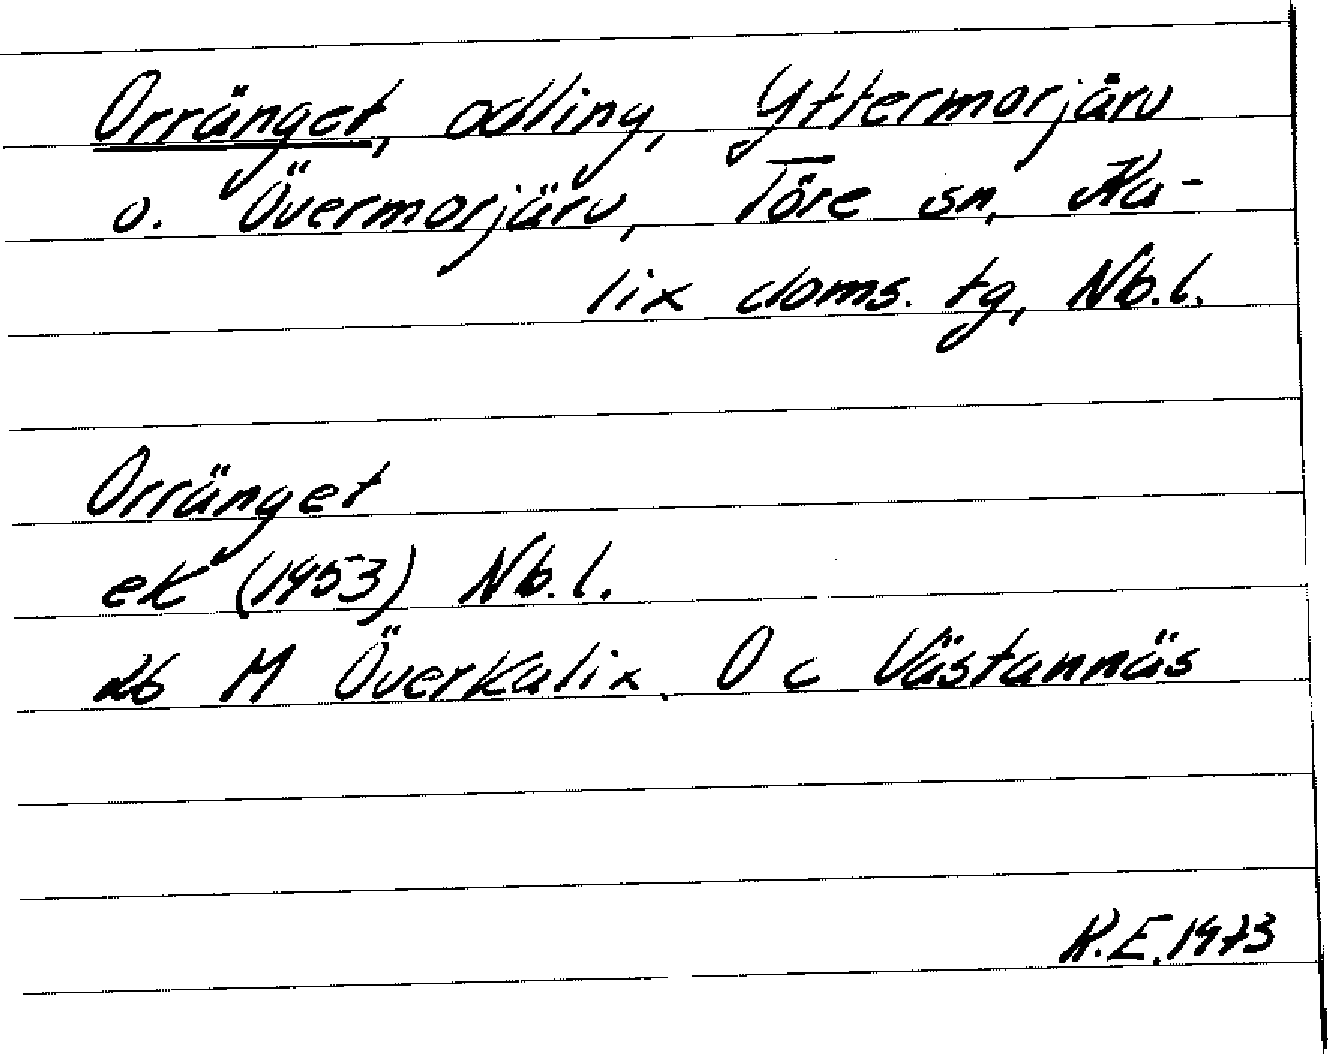 Orränget, odling, Yttermorjärv
o. Övermorjärv, Töre sn, Ka-
lix doms. tg, Nb.l.
Orränget
ek (1953) Nb.l.
db M Överkalix, O c Västannäs
K.E. 1973